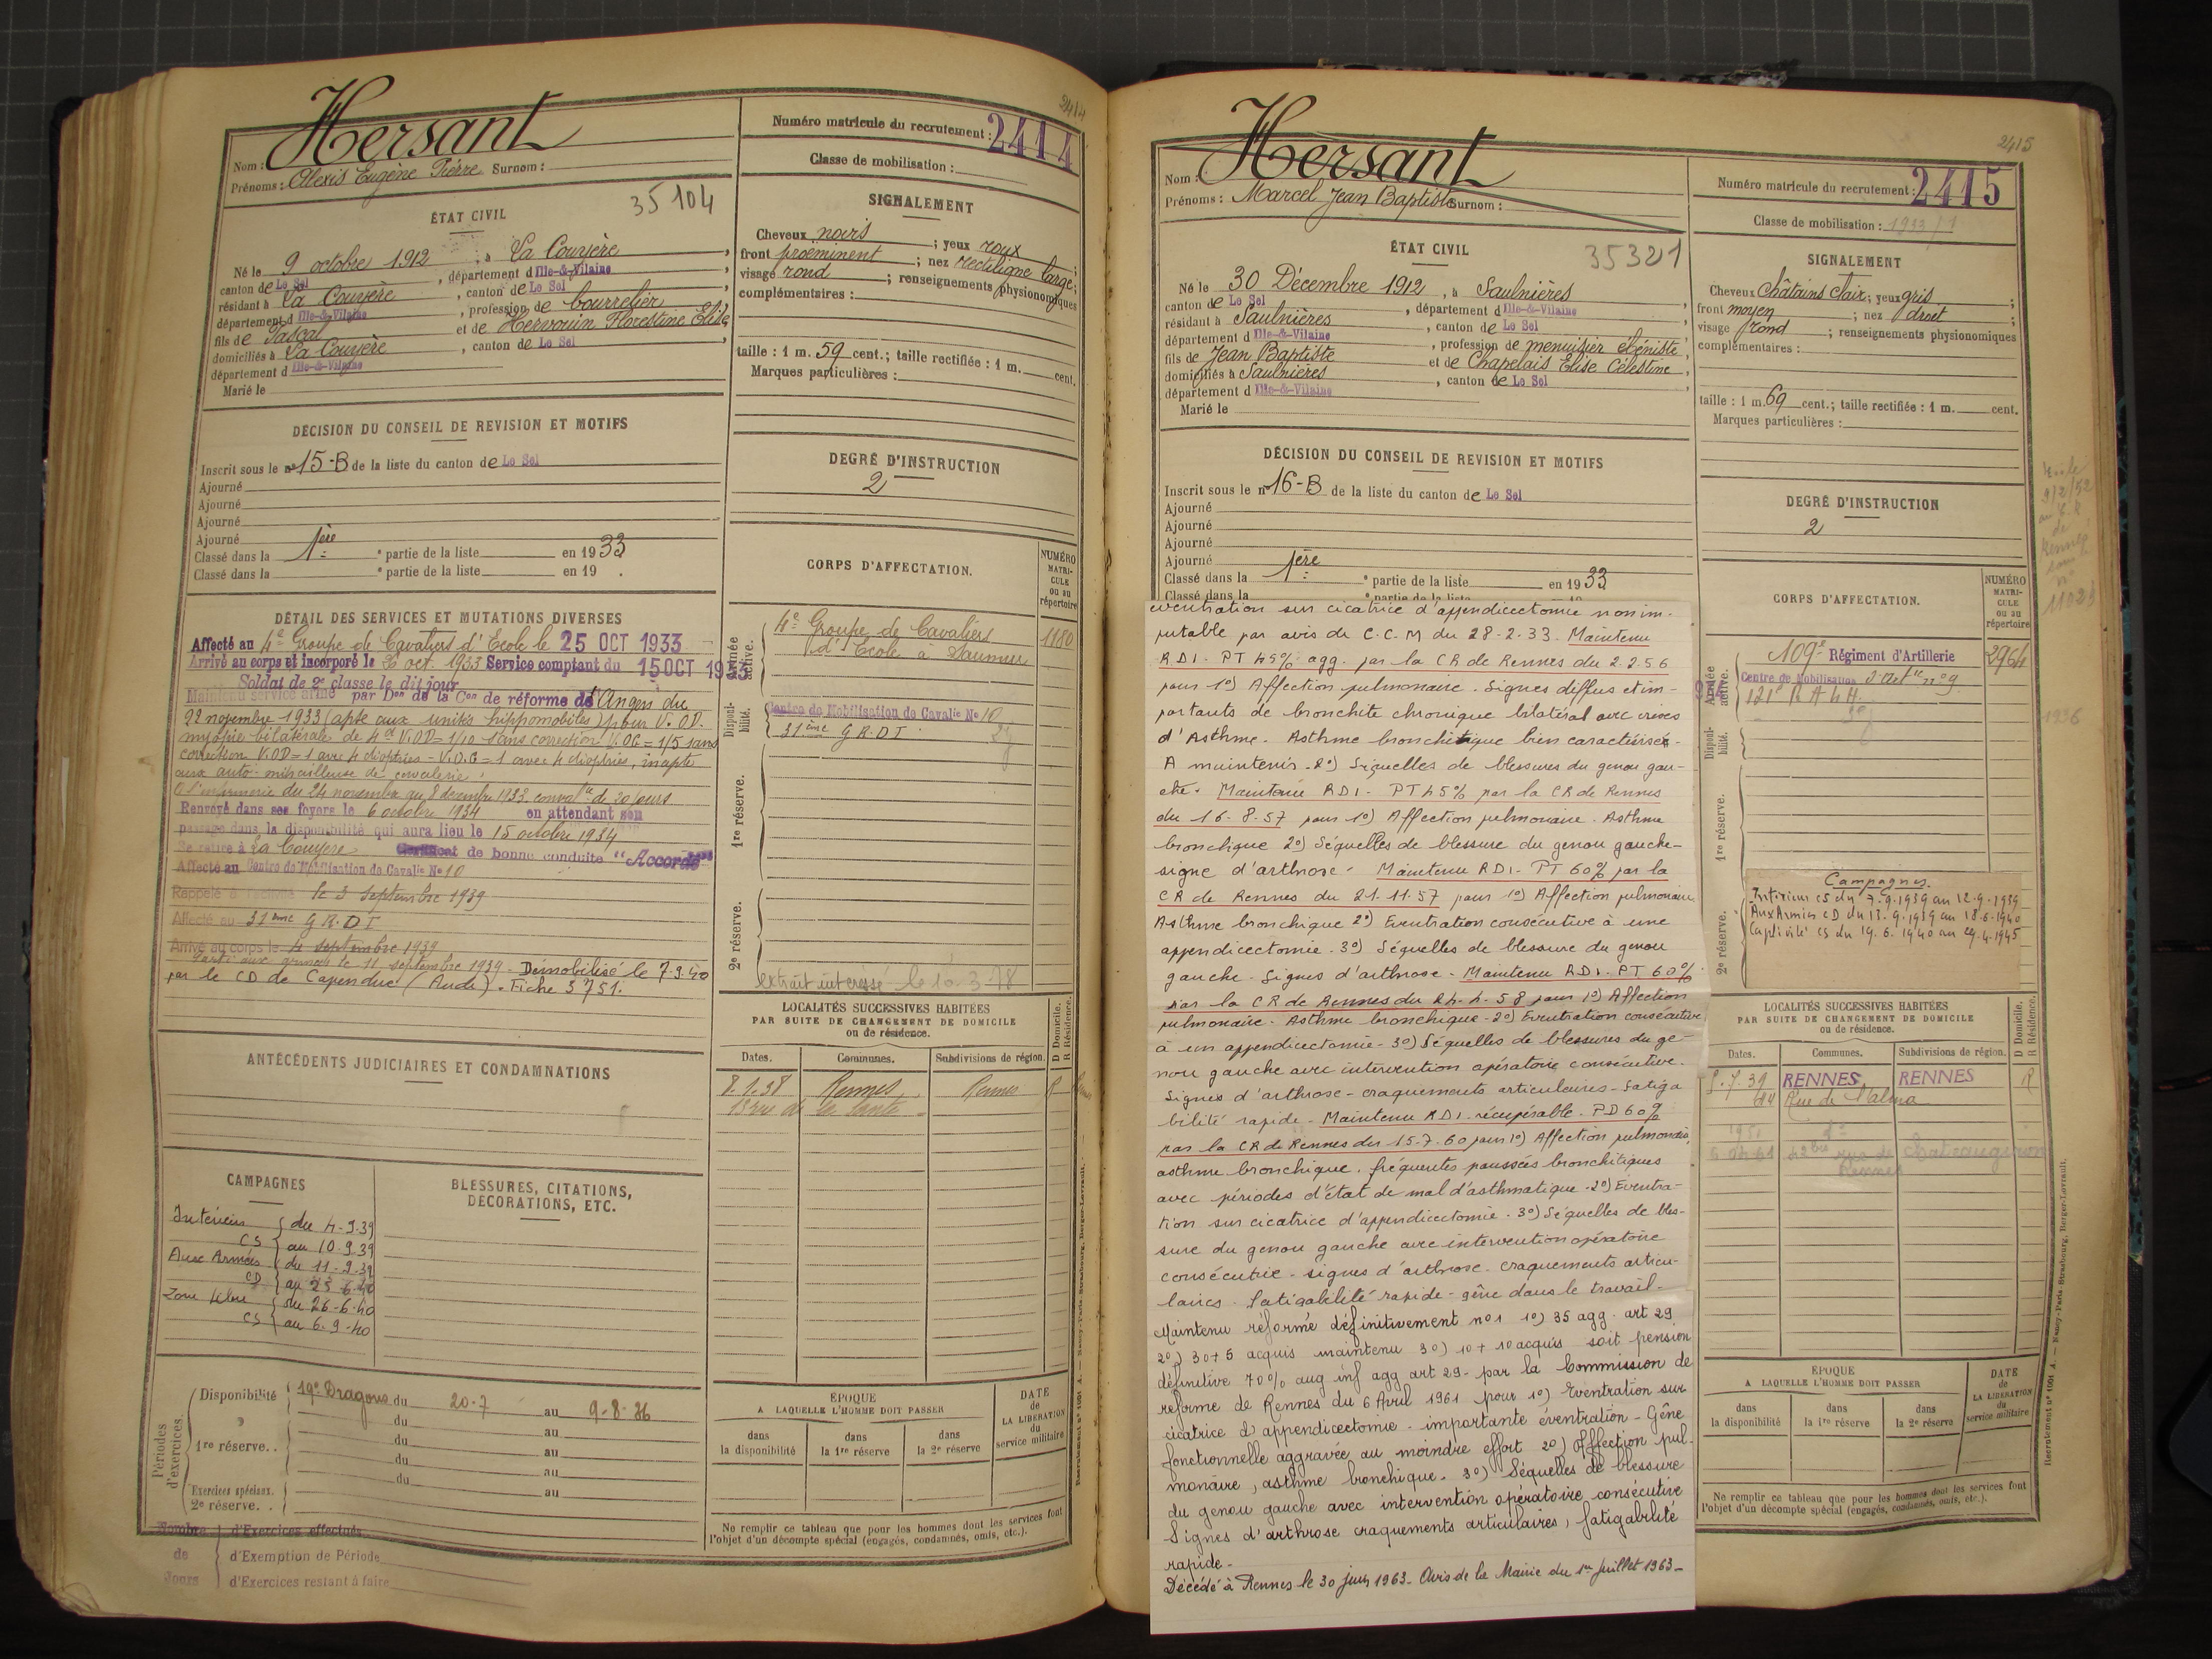 2414
Nom : Hersant
Prénoms : Alexis Eugène Pierre Surnom :
Numéro matricule du recrutement : 2414
Classe de mobilisation :
ÉTAT CIVIL
35104
Né le 9 octobre 1912, à La Couyère,
canton de Le Sel, département d Ille-&-Vilaine,
résidant à La Couyère, canton de Le Sel,
département d Ille-&-Vilaine, profession de bourrelier
fils de Pascal et de Hervouin Florestine Elise,
domiciliés à La Couyère, canton de Le Sel,
département d Ille-&-Vilaine
Marié le
SIGNALEMENT
Cheveux noirs ; yeux roux ;
front proéminent ; nez rectiligne large ;
visage rond ; renseignements physionomiques
complémentaires :
taille : 1 m. 59 cent.; taille rectifiée : 1 m. cent.
Marques particulières :
DÉCISION DU CONSEIL DE REVISION ET MOTIFS
Inscrit sous le n° 15-B de la liste du canton de Le Sel
Ajourné
Ajourné
Ajourné
Ajourné
Classé dans la 1ère partie de la liste en 1933
Classé dans la partie de la liste en 19 .
DEGRÉ D'INSTRUCTION
2
CORPS D'AFFECTATION.
NUMÉRO MATRI-CULE ou au répertoire
Armée active.
4e Groupe de Cavaliers 1180
d'Ecole à Saumur
Disponibilité.
Centre de Mobilisation de Cavalie No 10
31ème G R. D I
1re réserve.
2e réserve.
extrait intéressé le 10-3-78
DÉTAIL DES SERVICES ET MUTATIONS DIVERSES
Affecté au 4e Groupe de Cavaliers d'Ecole le 25 OCT 1933
Arrivé au corps et incorporé le oct. 1933 Service comptant du 15 OCT 1933
Soldat de 2e classe le dit jour
Maintenu service armé par Don de la Con de réforme de Angers du
22 novembre 1933 (apte aux unités hippomobiles) pour V.OD.
myopie bilatérale de 4d V.OD=1/10 sans correction V.OG=1/5 sans
correction V.OD=1 avec 4 dioptries - V.O.G=1 avec 4 dioptries, inapte
aux auto-mitrailleuse de cavalerie.
à l'infirmerie du 24 novembre au 8 décembre 1933. convalce de 20 jours
Renvoyé dans ses foyers le 6 octobre 1934 en attendant son
passage dans la disponibilité qui aura lieu le 15 octobre 1934
Se retire à La Couyère Certificat de bonne conduite "Accordé"
Affecté au Centre de Mobilisation de Cavalie No 10
Rappelé à l'activité le 3 septembre 1939
Affecté au 31ème G R. D I
Arrivé au corps le 4 septembre 1939
Parti aux armées le 11 septembre 1939. Démobilisé le 7.9.40
par le CD de Capendue (Aude). Fiche 3751.
ANTÉCÉDENTS JUDICIAIRES ET CONDAMNATIONS
LOCALITÉS SUCCESSIVES HABITÉES
PAR SUITE DE CHANGEMENT DE DOMICILE
ou de résidence.
D Domicile. R Résidence.
Dates. Communes. Subdivisions de région.
8.1.38 Rennes Rennes R
13 rue de la Santé
CAMPAGNES
Intérieur CS du 4-9.39
au 10.9.39
Aux Armées CD du 11-9-39
au 25-6-40
Zone libre CS du 26-6-40
au 6.9-40
BLESSURES, CITATIONS,
DÉCORATIONS, ETC.
Périodes d'exercices.
Disponibilité 19e Dragons du 20-7 au 9-8-36
du au
1re réserve.. du au
du au
Exercices spéciaux. du au
2e réserve. .
Nombre d'Exercices effectués
de d'Exemption de Période
Jours d'Exercices restant à faire
ÉPOQUE
A LAQUELLE L'HOMME DOIT PASSER
dans la disponibilité
dans la 1re réserve
dans la 2e réserve
DATE de LA LIBÉRATION du service militaire
Ne remplir ce tableau que pour les hommes dont les services font
l'objet d'un décompte spécial (engagés, condamnés, omis, etc.).
2415
Nom : Hersant
Prénoms : Marcel Jean Baptiste Surnom :
Numéro matricule du recrutement : 2415
Classe de mobilisation : 1933/1
ÉTAT CIVIL
35321
Né le 30 Décembre 1912, à Saulnières
canton de Le Sel, département d Ille-&-Vilaine
résidant à Saulnières, canton de Le Sel
département d Ille-&-Vilaine, profession de menuisier ébéniste,
fils de Jean Baptiste et de Chapelais Elise Célestine,
domiciliés à Saulnières, canton de Le Sel
département d Ille-&-Vilaine
Marié le
SIGNALEMENT
Cheveux châtains clair ; yeux gris ;
front moyen ; nez droit ;
visage rond ; renseignements physionomiques
complémentaires :
taille : 1 m. 69 cent.; taille rectifiée : 1 m. cent.
Marques particulières :
DÉCISION DU CONSEIL DE REVISION ET MOTIFS
Inscrit sous le n° 16-B de la liste du canton de Le Sel
Ajourné
Ajourné
Ajourné
Ajourné
Classé dans la 1ère partie de la liste en 1933
Classé dans la partie de la liste
DEGRÉ D'INSTRUCTION
2
9/2/52
de
Rennes
sous
n°
11023
1936
CORPS D'AFFECTATION.
NUMÉRO MATRI-CULE ou au répertoire
Armée active.
109e Régiment d'Artillerie 2964
Centre de Mobilisation d'Artie n° 9
121e R A L H.
Disponibilité.
1re réserve.
2e réserve.
Campagnes.
Intérieur CS du 7.9.1939 au 12.9.1939
Aux Armées CD du 13.9.1939 au 18.6.1940
Captivité CS du 19.6.1940 au 29.4.1945
eventration sur cicatrice d'appendicectomie non im-
putable par avis de C.C.M du 28-2-33. Maintenu
RD1. PT 45% agg. par la CR de Rennes du 2.2.56
pour 1°) Affection pulmonaire. Signes diffus et im-
portants de bronchite chronique bilatéral avec crises
d'Asthme. Asthme bronchitique bien caractérisé.
A maintenir. 2°) Séquelles de blessures du genou gau-
che. Maintenu RD1- PT 45% par la CR de Rennes
du 16-8.57 pour 1°) Affection pulmonaire. Asthme
bronchique 2°) Séquelles de blessure du genou gauche-
signe d'arthrose. Maintenu RD1- PT 60% par la
CR de Rennes du 21.11.57 pour 1°) Affection pulmonaire
Asthme bronchique 2°) Eventration consécutive à une
appendicectomie. 3°) Séquelles de blessure du genou
gauche. Signes d'arthrose. Maintenu RD1-PT 60%
par la CR de Rennes du 24-4-58 pour 1°) Affection
pulmonaire. Asthme bronchique-2°) Eventration consécutive
à un appendicectomie-3°) Séquelles de blessures du ge-
nou gauche avec intervention opératoire consécutive.
Signes d'arthrose-craquements articulaires-fatiga
bilité rapide. Maintenu RD1-récupérable. PD 60%
par la CR de Rennes du 15-7.60 pour 1°) Affection pulmonaire,
asthme bronchique. fréquentes poussées bronchitiques
avec périodes d'état de mal d'asthmatique-2°) Eventra-
tion sur cicatrice d'appendicectomie. 3°) Séquelles de bles-
sure du genou gauche avec intervention opératoire
consécutive-signes d'arthrose. craquements articu-
laires. fatigabilité rapide-gêne dans le travail-
Maintenu réformé définitivement n°1 1°) 35 agg. art 29
2°) 30+5 acquis maintenu 3°) 10+10 acquis soit pension
définitive 70% aug inf agg art 29- par la Commission de
réforme de Rennes du 6 Avril 1961 pour 1°) Eventration sur
cicatrice d'appendicectomie-importante éventration-Gêne
fonctionnelle aggravée au moindre effort 2°) Affection pul-
monaire, asthme bronchique. 3°) Séquelles de blessure
du genou gauche avec intervention opératoire consécutive
Signes d'arthrose craquements articulaires, fatigabilité
rapide-
Décédé à Rennes le 30 juin 1963-Avis de la Mairie du 1er juillet 1963-
LOCALITÉS SUCCESSIVES HABITÉES
PAR SUITE DE CHANGEMENT DE DOMICILE
ou de résidence.
D Domicile. R Résidence.
Dates. Communes. Subdivisions de région.
5.7.39 RENNES RENNES R
44 Rue de Chateaugiron
Rennes
ÉPOQUE
A LAQUELLE L'HOMME DOIT PASSER
dans la disponibilité
dans la 1re réserve
dans la 2e réserve
DATE de LA LIBÉRATION du service militaire
Ne remplir ce tableau que pour les hommes dont les services font
l'objet d'un décompte spécial (engagés, condamnés, omis, etc.).
Recrutement n° 1061 A. — Nancy-Paris-Strasbourg, Berger-Levrault.